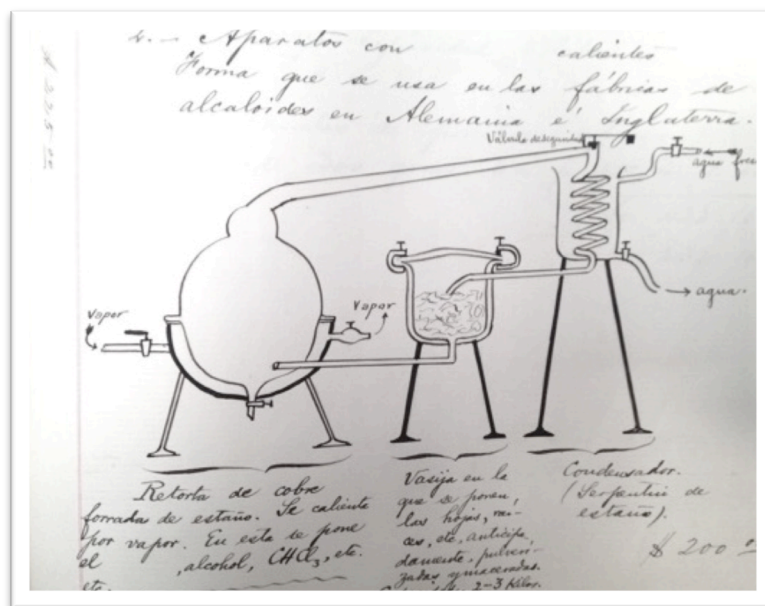 4.— Aparatos con calientes
Forma que se usa en las fábricas de
alcaloides en Alemania é Inglaterra.
Válvula de seguridad
agua
vapor
vapor
agua.
Retorta de cobre
forrada de estaño. Se calienta
por vapor. En esta se pone
el , alcohol, CHCl3, etc.
etc.
Vasija en la
que se ponen,
las hojas, raí-
ces, etc, anticipa,
damente, pulveri-
zadas y maceradas.
2-3 Kilos.
Condensador.
(Serpentín de
estaño).
$ 200